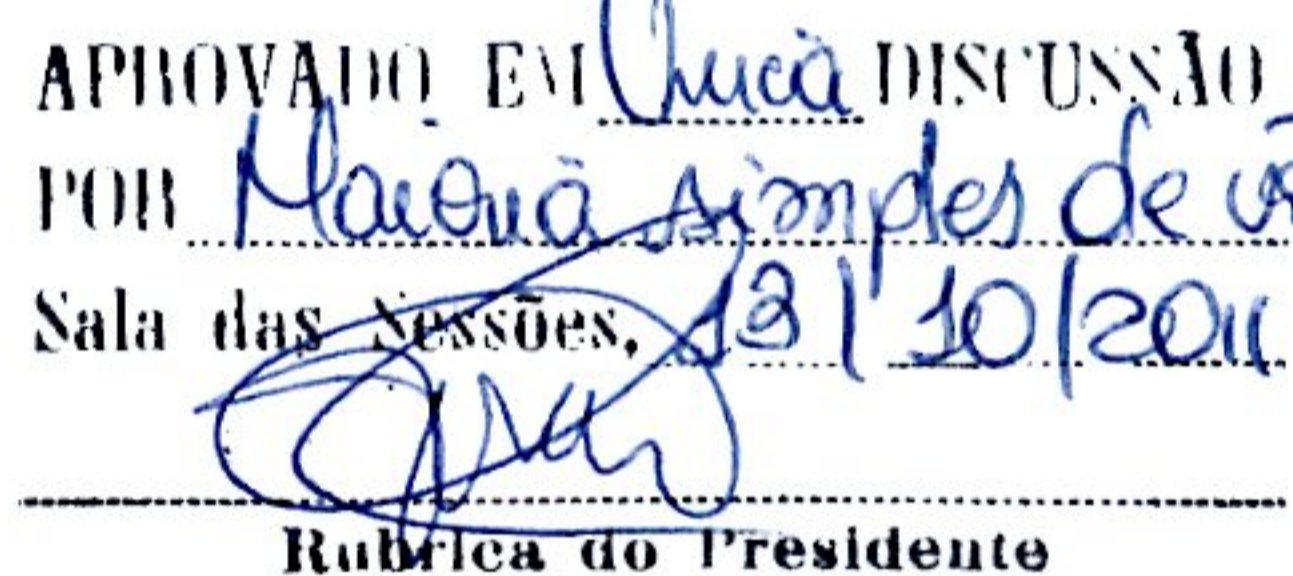 APROVADO EM Única DISCUSSÃO
POR Maioria simples de
Sala das Sessões, 13/10/2011
Rubrica do Presidente